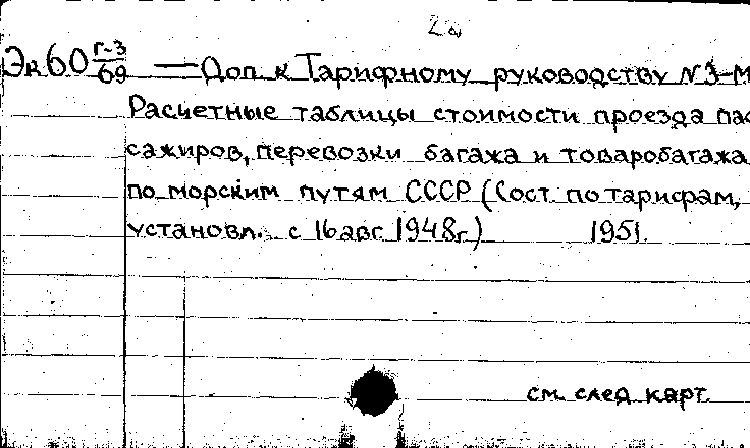 2а
Эк60 Г-3/69 — Доп. к Тарифному руководству N3-М
Расчетные таблицы стоимости проезда пас
сажиров, перевозки багажа и товаробагажа
по морским путям СССР (Сост. по тарифам,
установл. с 16 авг. 1948г.) 1951.
см. след. карт.